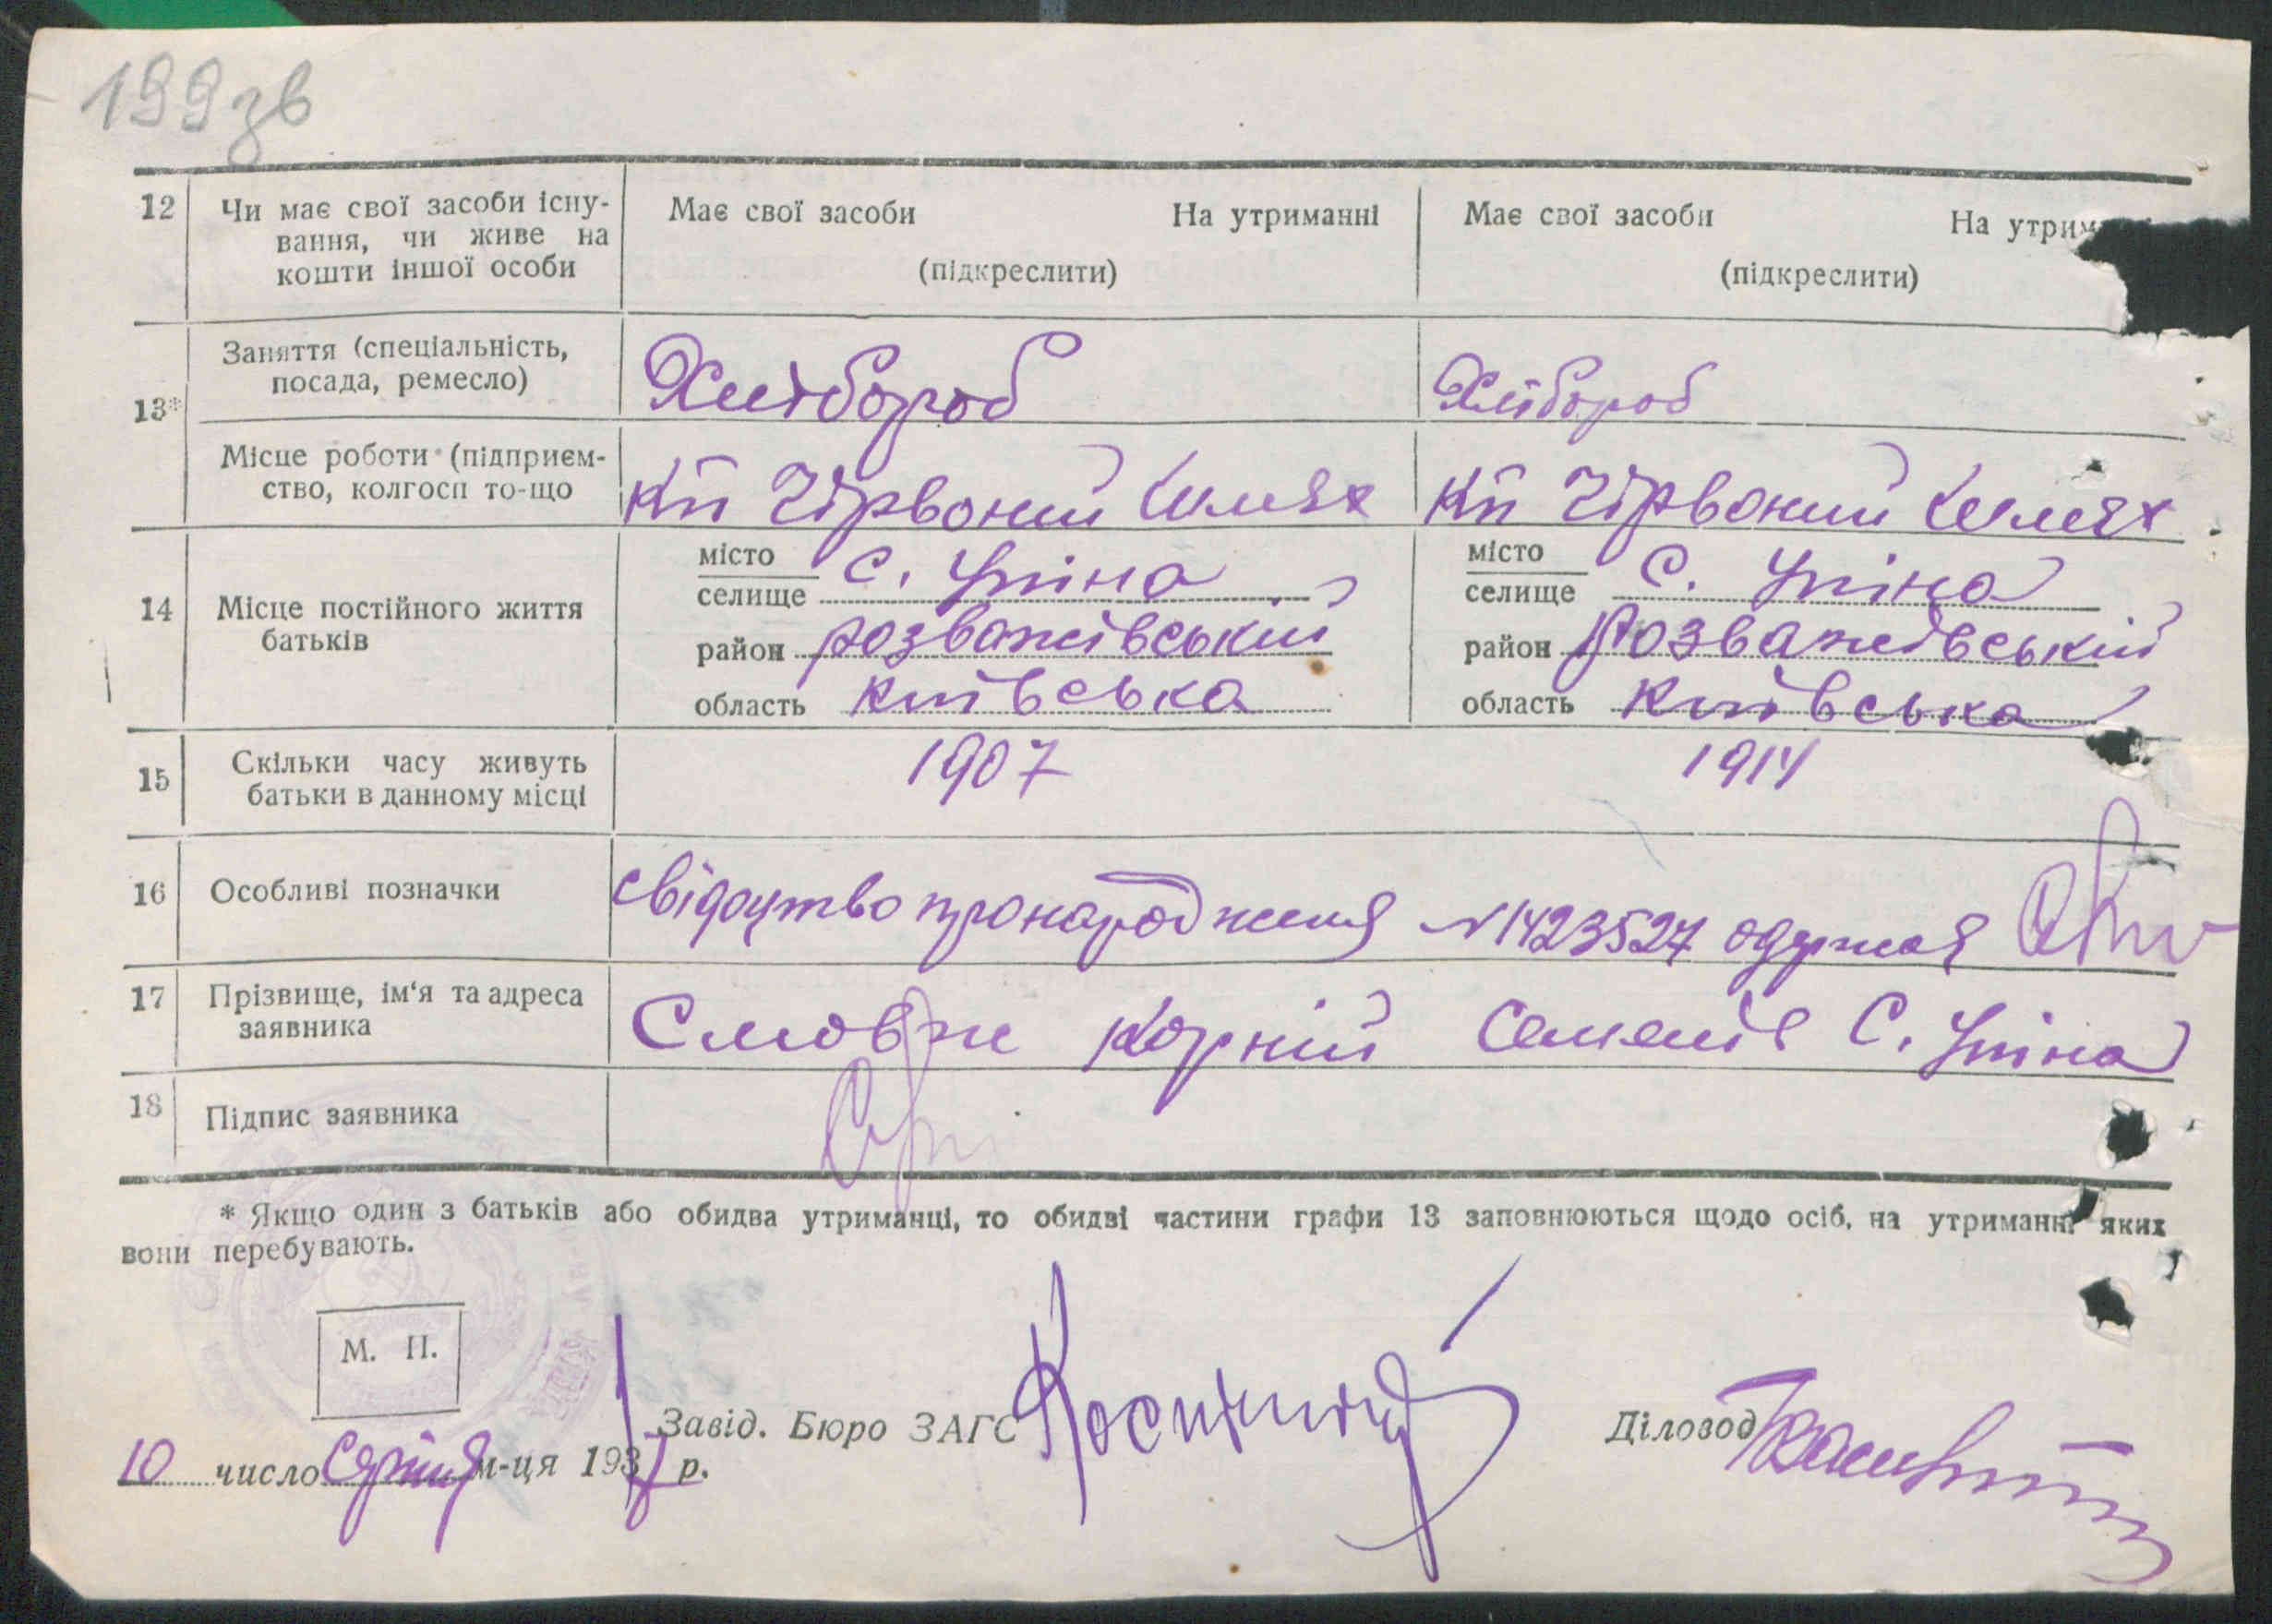 199 зв
12 Чи має свої засоби існу- Має свої засоби На утриманні Має свої засоби На утрим
вання, чи живе на
кошти іншої особи (підкреслити) (підкреслити)
13* Заняття (спеціальність,
посада, ремесло) Хлібороб Хлібороб
Місце роботи (підприєм-
ство, колгосп то-що Кп Чірвоний Шлях Кп Чірвоний Шлях
14 Місце постійного життя
батьків
місто
селище с. Уніна
район розважівський
область київська
місто
селище с. Уніна
район Розважівський
область київська
15 Скільки часу живуть
батьки в данному місці 1907 1914
16 Особливі позначки свідоцтво про народження N 1423527 одержав
17 Прізвище, ім'я та адреса
заявника Корній Семенів С. Уніна
18 Підпис заявника
* Якщо один з батьків або обидва утриманці, то обидві частини графи 13 заповнюються щодо осіб, на утриманні яких
вони перебувають.
М. П.
Завід. Бюро ЗАГС Діловод
10 число Серпня м-ця 1937 р.